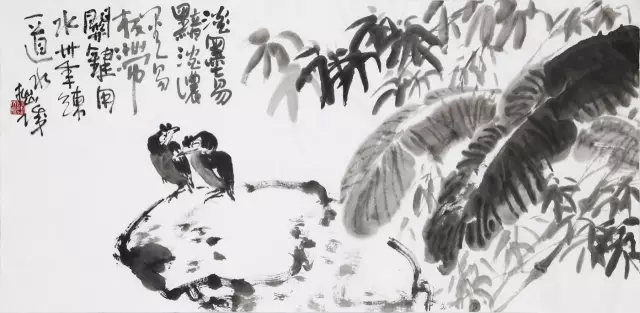 淡墨易
黯淡濃
墨又易
枯滯
關鍵用
水卅年練
一道水